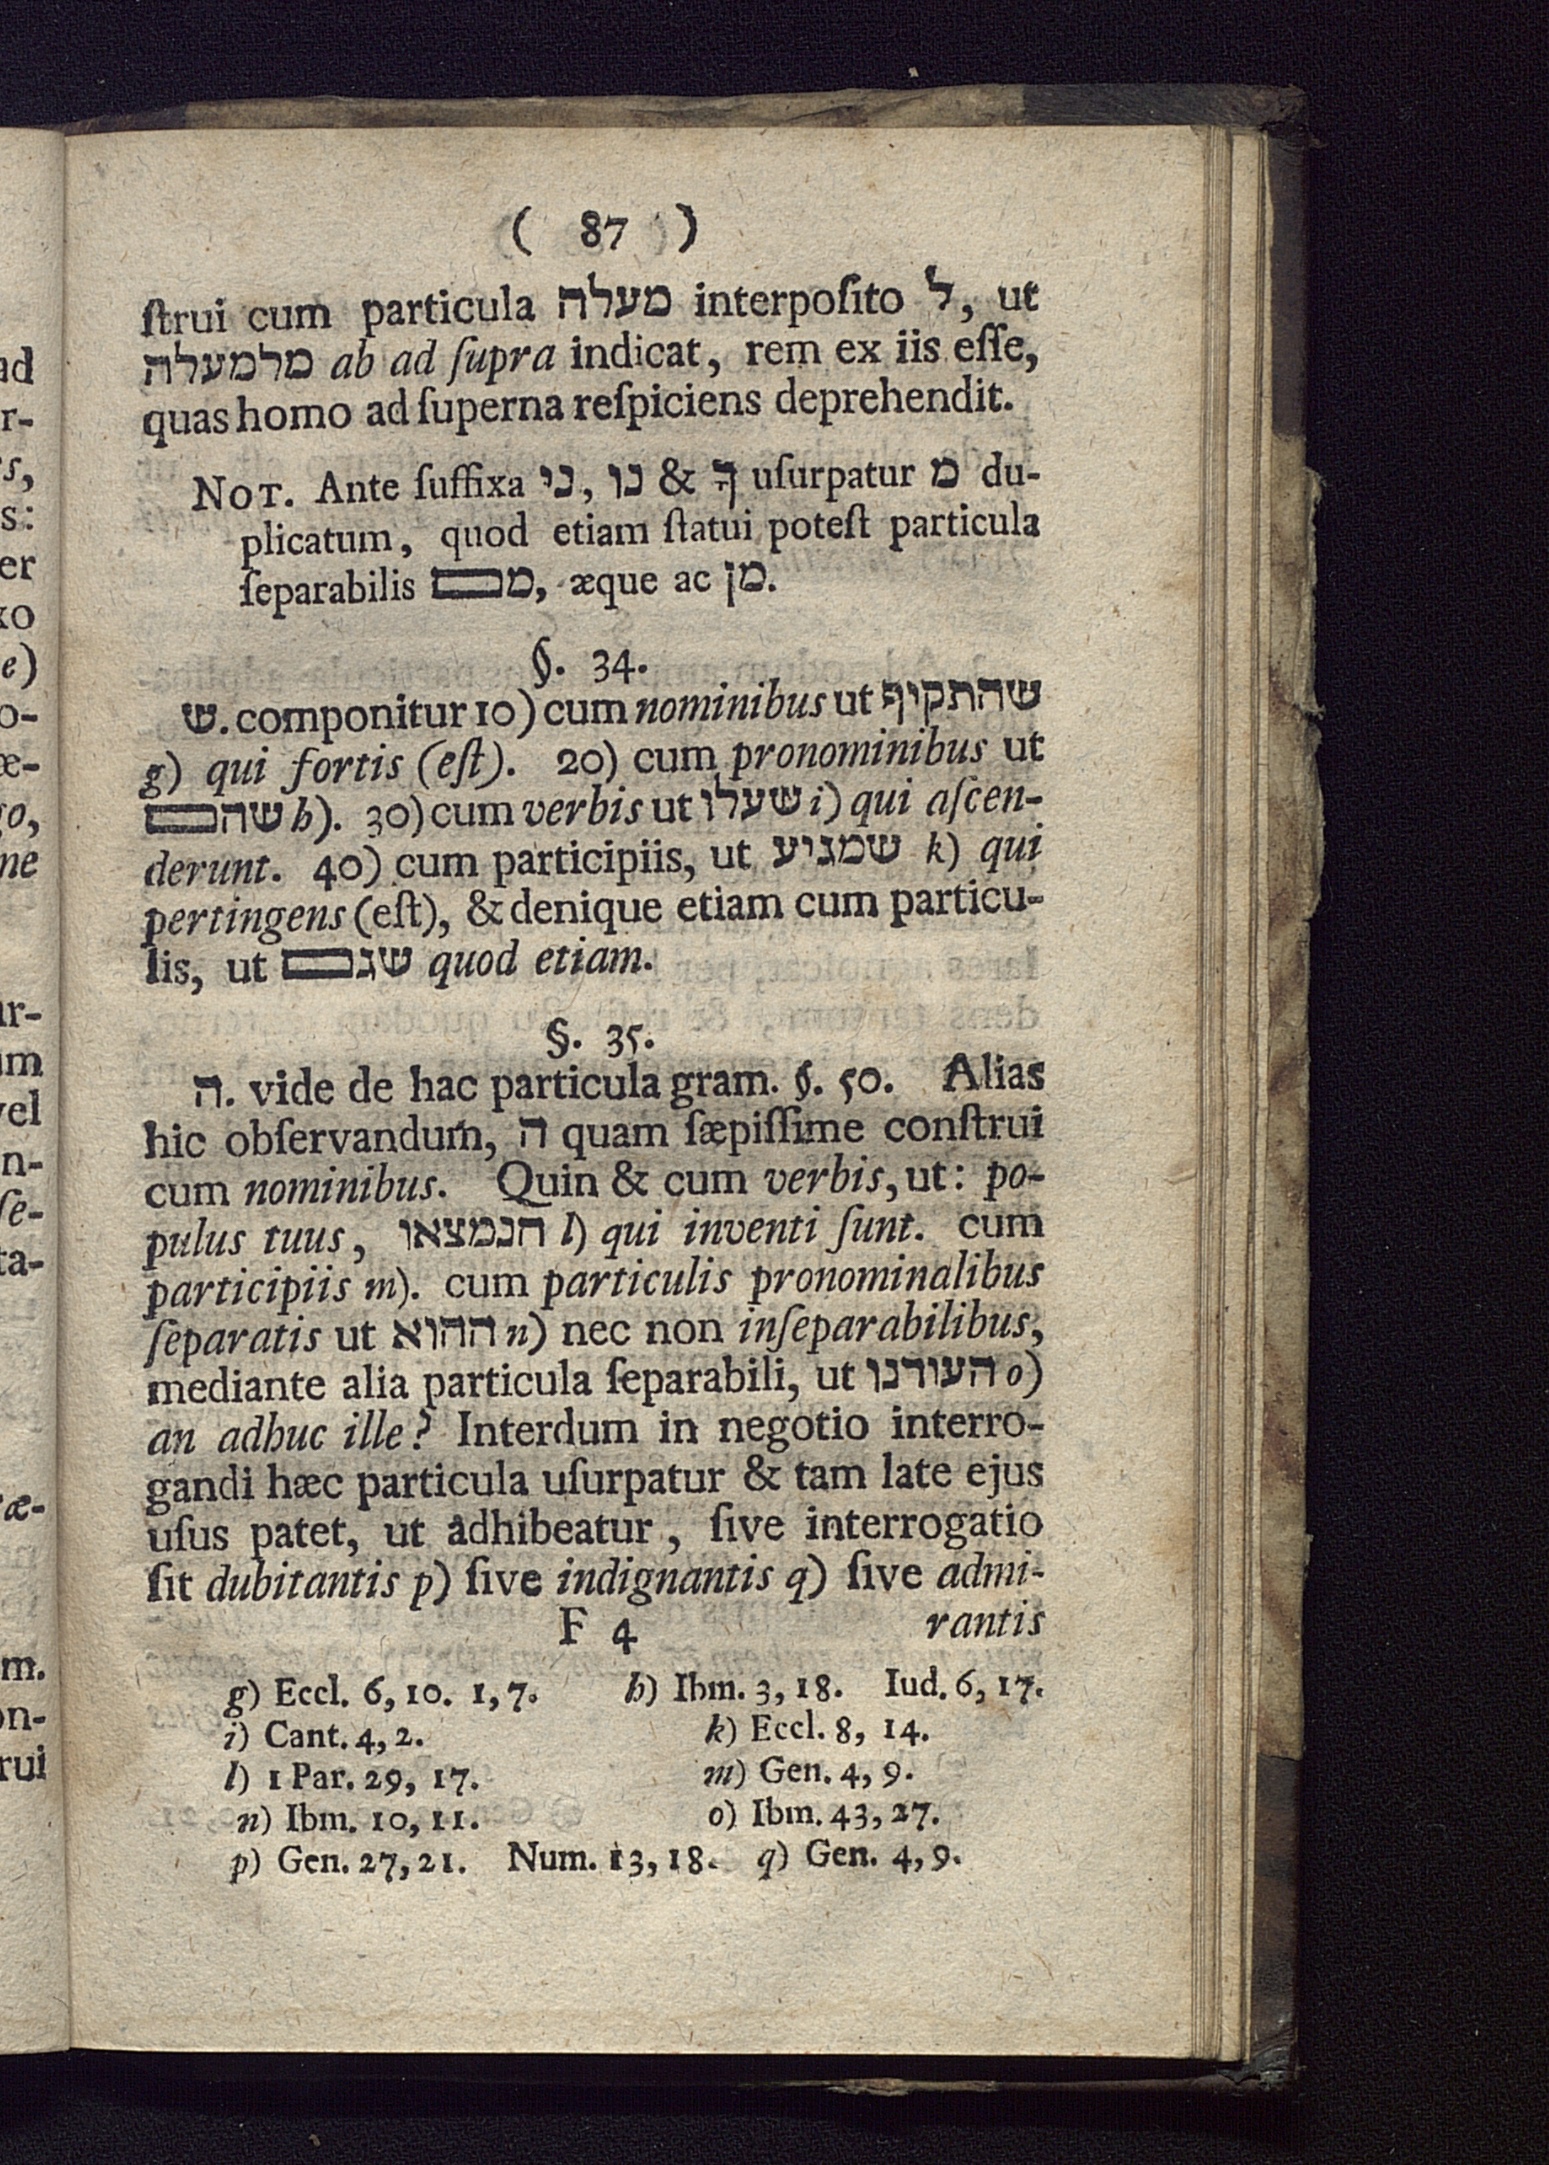 ( 87 )
ſtrui cum particula מעלה interpoſito ל, ut
מלמעלה ab ad ſupra indicat, rem ex iis eſſe,
quas homo ad ſuperna reſpiciens deprehendit.
NOT. Ante ſuffixa ני, נו & ך uſurpatur מ du-
plicatum, quod etiam ſtatui poteſt particula
ſeparabilis מם, æque ac מן.
§. 34.
ש. componitur 10) cum nominibus ut שהתקיף
g) qui fortis (eſt). 20) cum pronominibus ut
שהם h). 30) cum verbis ut שעלו i) qui aſcen-
derunt. 40) cum participiis, ut שמגיע k) qui
pertingens (eſt), & denique etiam cum particu-
lis, ut שגם quod etiam.
§. 35.
ה. vide de hac particula gram. §. 50. Alias
hic obſervandum, ה quam ſæpiſſime conſtrui
cum nominibus. Quin & cum verbis, ut: po-
pulus tuus, הנמצאו l) qui inventi ſunt. cum
participiis m). cum particulis pronominalibus
ſeparatis ut ההוא n) nec non inſeparabilibus,
mediante alia particula ſeparabili, ut העודנו o)
an adhuc ille? Interdum in negotio interro-
gandi hæc particula uſurpatur & tam late ejus
uſus patet, ut adhibeatur, ſive interrogatio
ſit dubitantis p) ſive indignantis q) ſive admi-
F 4 rantis
g) Eccl. 6, 10. 1, 7. h) Ibm. 3, 18. Iud. 6, 17.
i) Cant. 4, 2. k) Eccl. 8, 14.
l) 1 Par. 29, 17. m) Gen. 4, 9.
n) Ibm. 10, 11. o) Ibm. 43, 27.
p) Gen. 27, 21. Num. 13, 18. q) Gen. 4, 9.